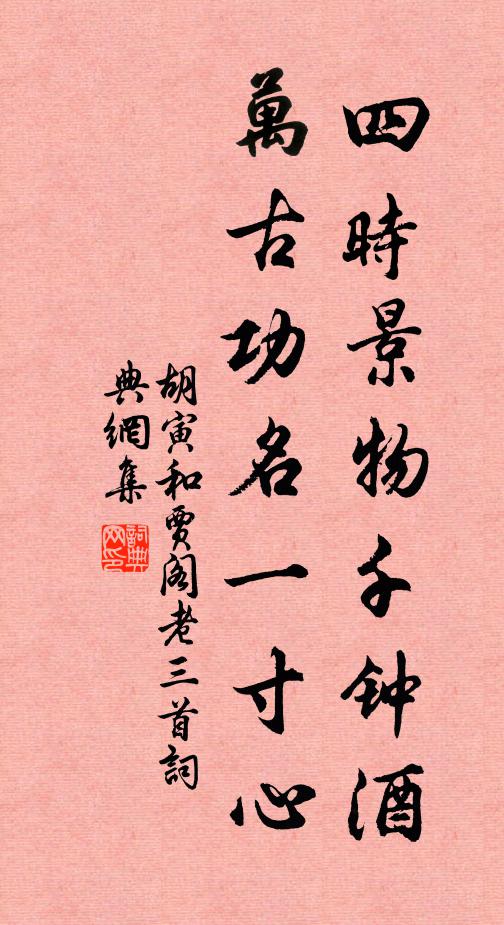 四時景物千钟酒
萬古功名一寸心
胡寅和賈阁老三首詞
典網集
詞典网印